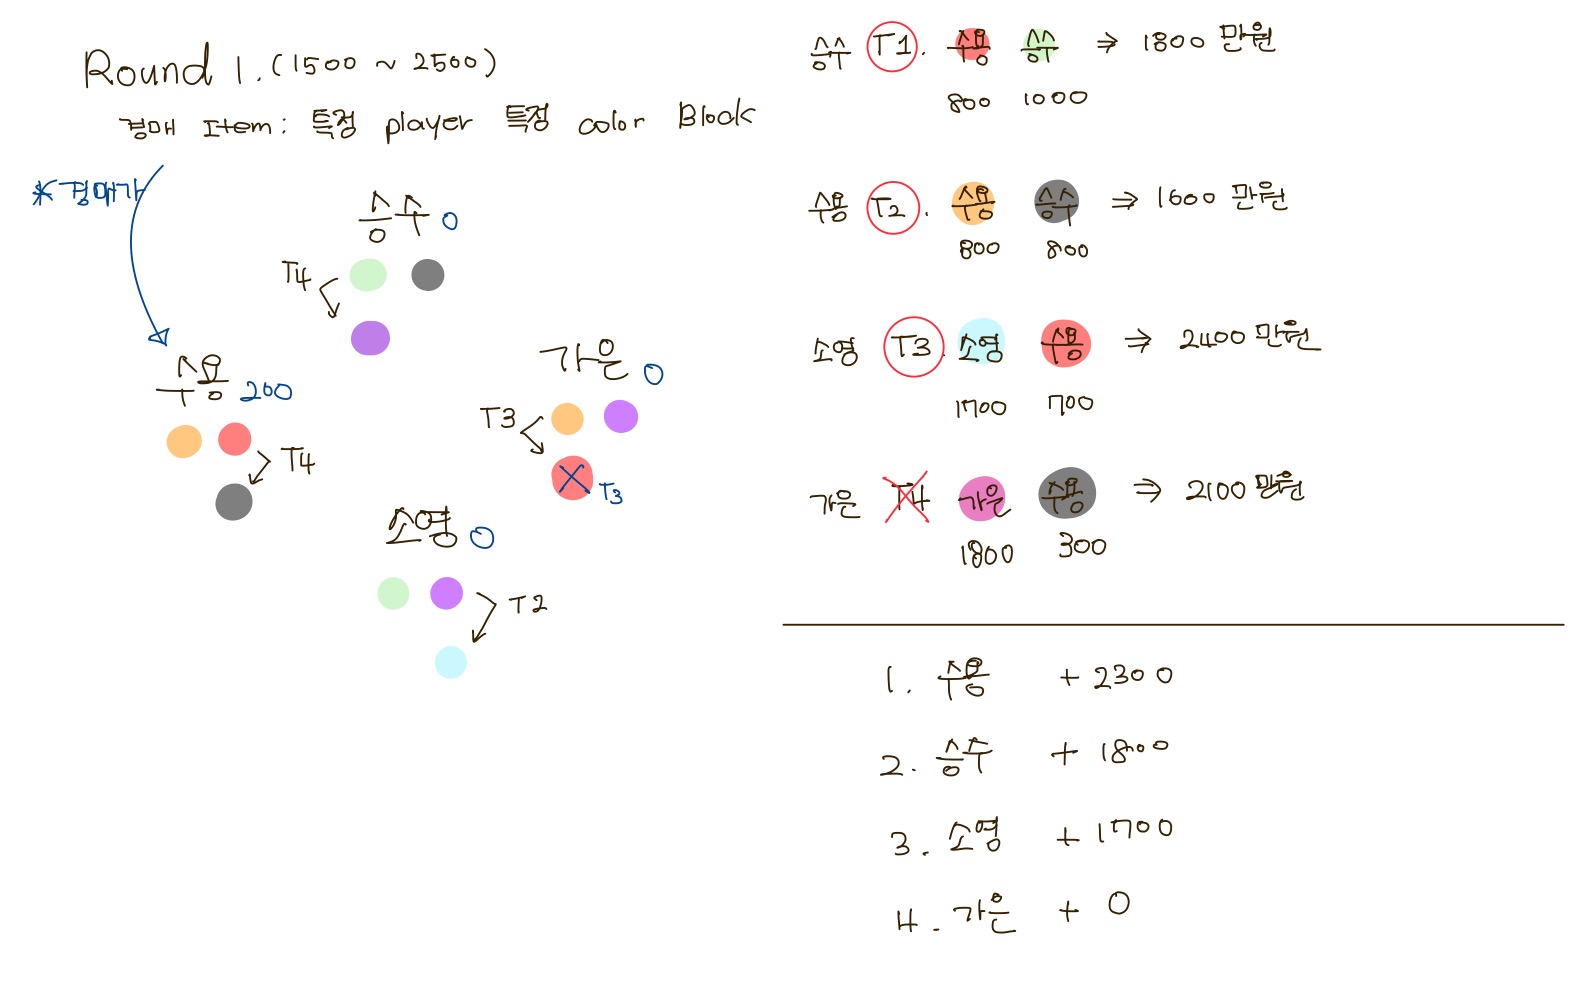 Round 1. (1500 ~ 2500)
경매 Item: 특정 player 특정 color Block
*경매가
승수 0
T4
수용 200
T4
가은 0
T3
T3
소영 0
T2
승수 T1. 수용 승수 ⇒ 1800 만원
800 1000
수용 T2. 수용 승수 ⇒ 1600 만원
800 800
소영 T3. 소영 수용 ⇒ 2400 만원
1700 700
가은 T4 가은 수용 ⇒ 2100 만원
1800 300
1. 수용 + 2300
2. 승수 + 1800
3. 소영 + 1700
4. 가은 + 0